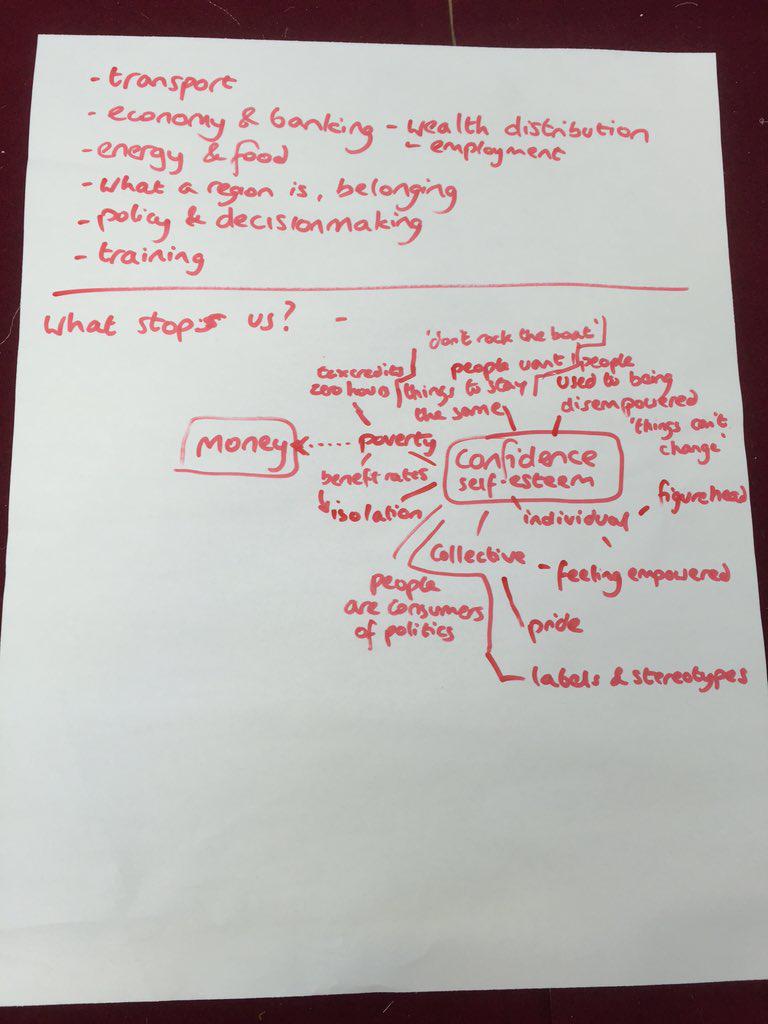 - transport
- economy & banking - wealth distribution
- employment
- energy & food
- what a region is, belonging
- policy & decisionmaking
- training
What stops us? -
'don't rock the boat'
people want
things to stay
the same
people
used to being
disempowered
'things can't
change'
tax credits
zero hours
money
poverty
benefit rates
isolation
Confidence
self-esteem
individual
figurehead
Collective
- feeling empowered
people
are consumers
of politics
pride
labels & stereotypes